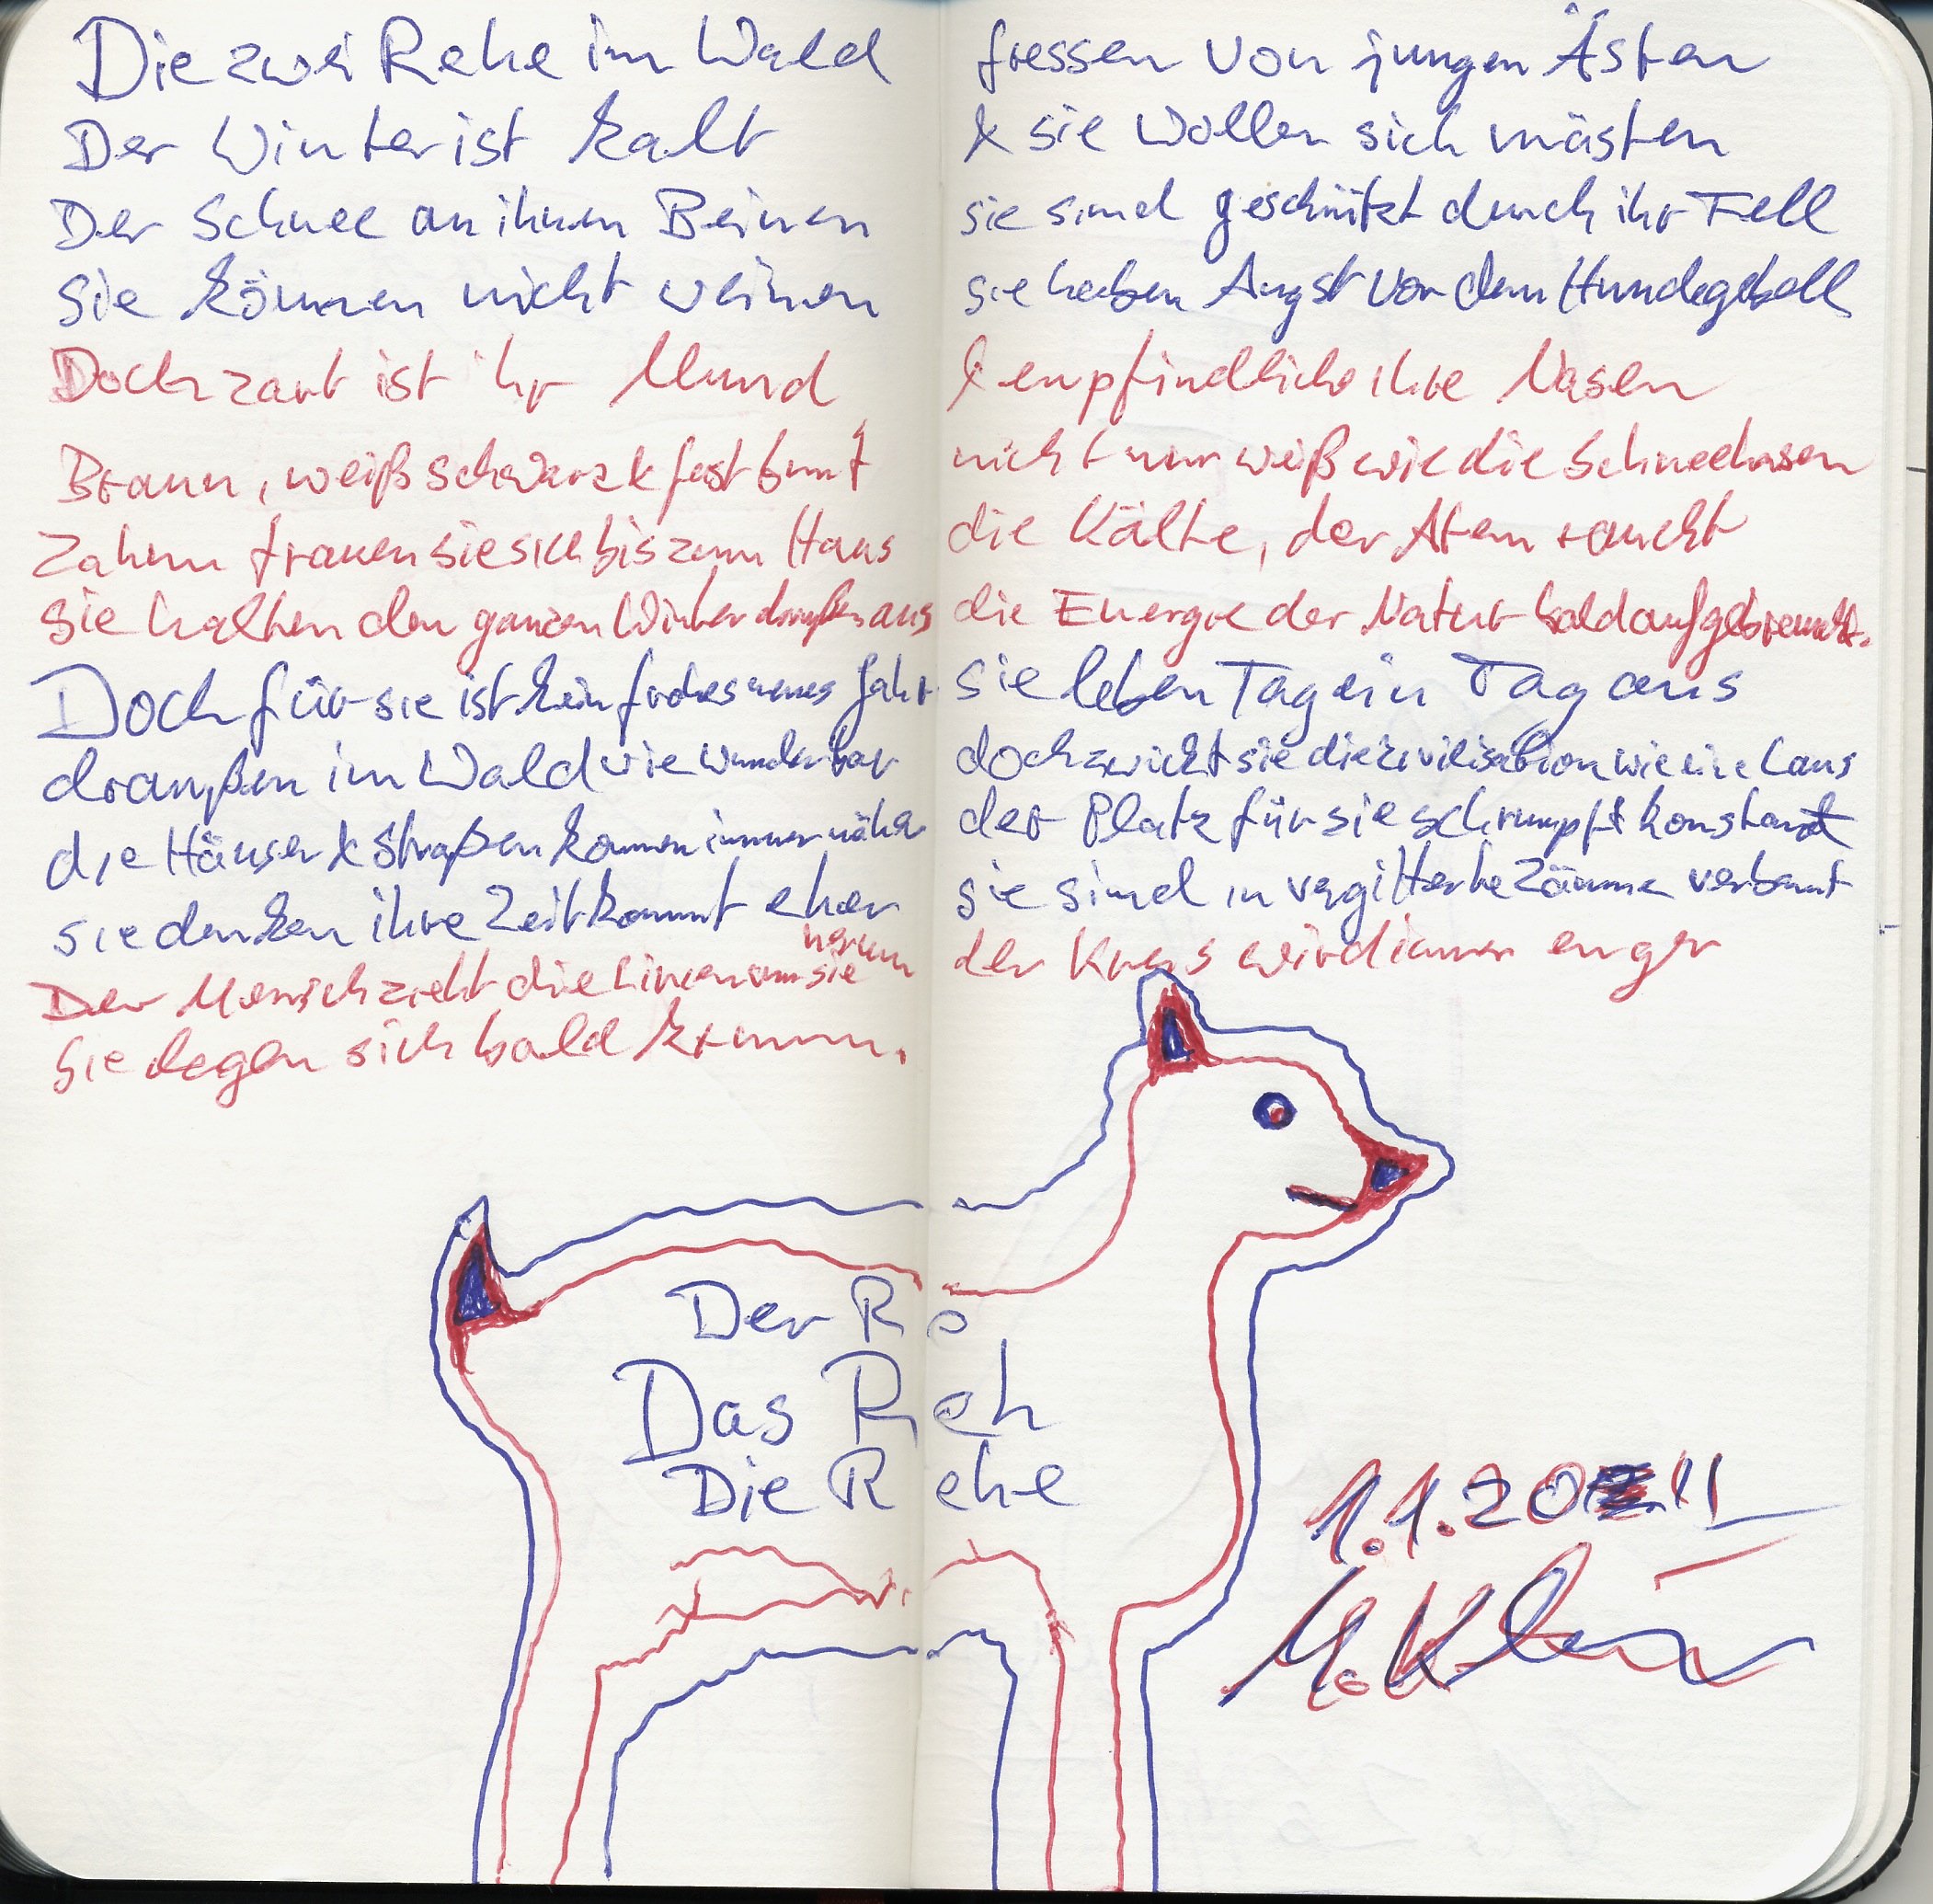 Die zwei Rehe im Wald
Der Winter ist kalt
Der Schnee an ihnen Beinen
Sie können nicht weinen
Doch zart ist ihr Mund
Braun, weiß schwarz & fast bunt
Zahm trauen sie sich bis zum Haus
sie halten den ganzen Winter draußen aus
Doch für sie ist kein frohes neues Jahr
draußen im Wald wie wunderbar
die Häuser & Straßen kommen immer näher
sie denken ihre Zeit kommt eher
Der Mensch zieht die Linien um sie herum
Sie legen sich bald krumm.
fressen von jungen Ästen
& sie wollen sich mästen
sie sind geschützt durch ihr Fell
sie haben Angst vor dem Hundegebell
& empfindliche ihre Nasen
nicht nur weiß wie die Schneehasen
die Kälte, der Atem raucht
die Energie der Natur bald aufgebraucht.
sie leben Tag ein Tag aus
doch zwickt sie die Zivilisation wie eine Laus
der Platz für sie schrumpft konstant
sie sind in vergitterte Zäune verbannt
der Kreis wird immer enger
Der Re
Das Reh
Die Rehe
1.1.2011
M. Klein